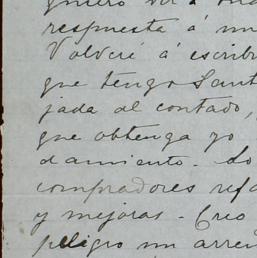 quiero ver á
respuesta á mi
Volveré á escribi
que tengo Sant
jada al contado,
que obtenga yo
damiento. Lo
compradores refa
y mejoras - Creo
peligro un arren